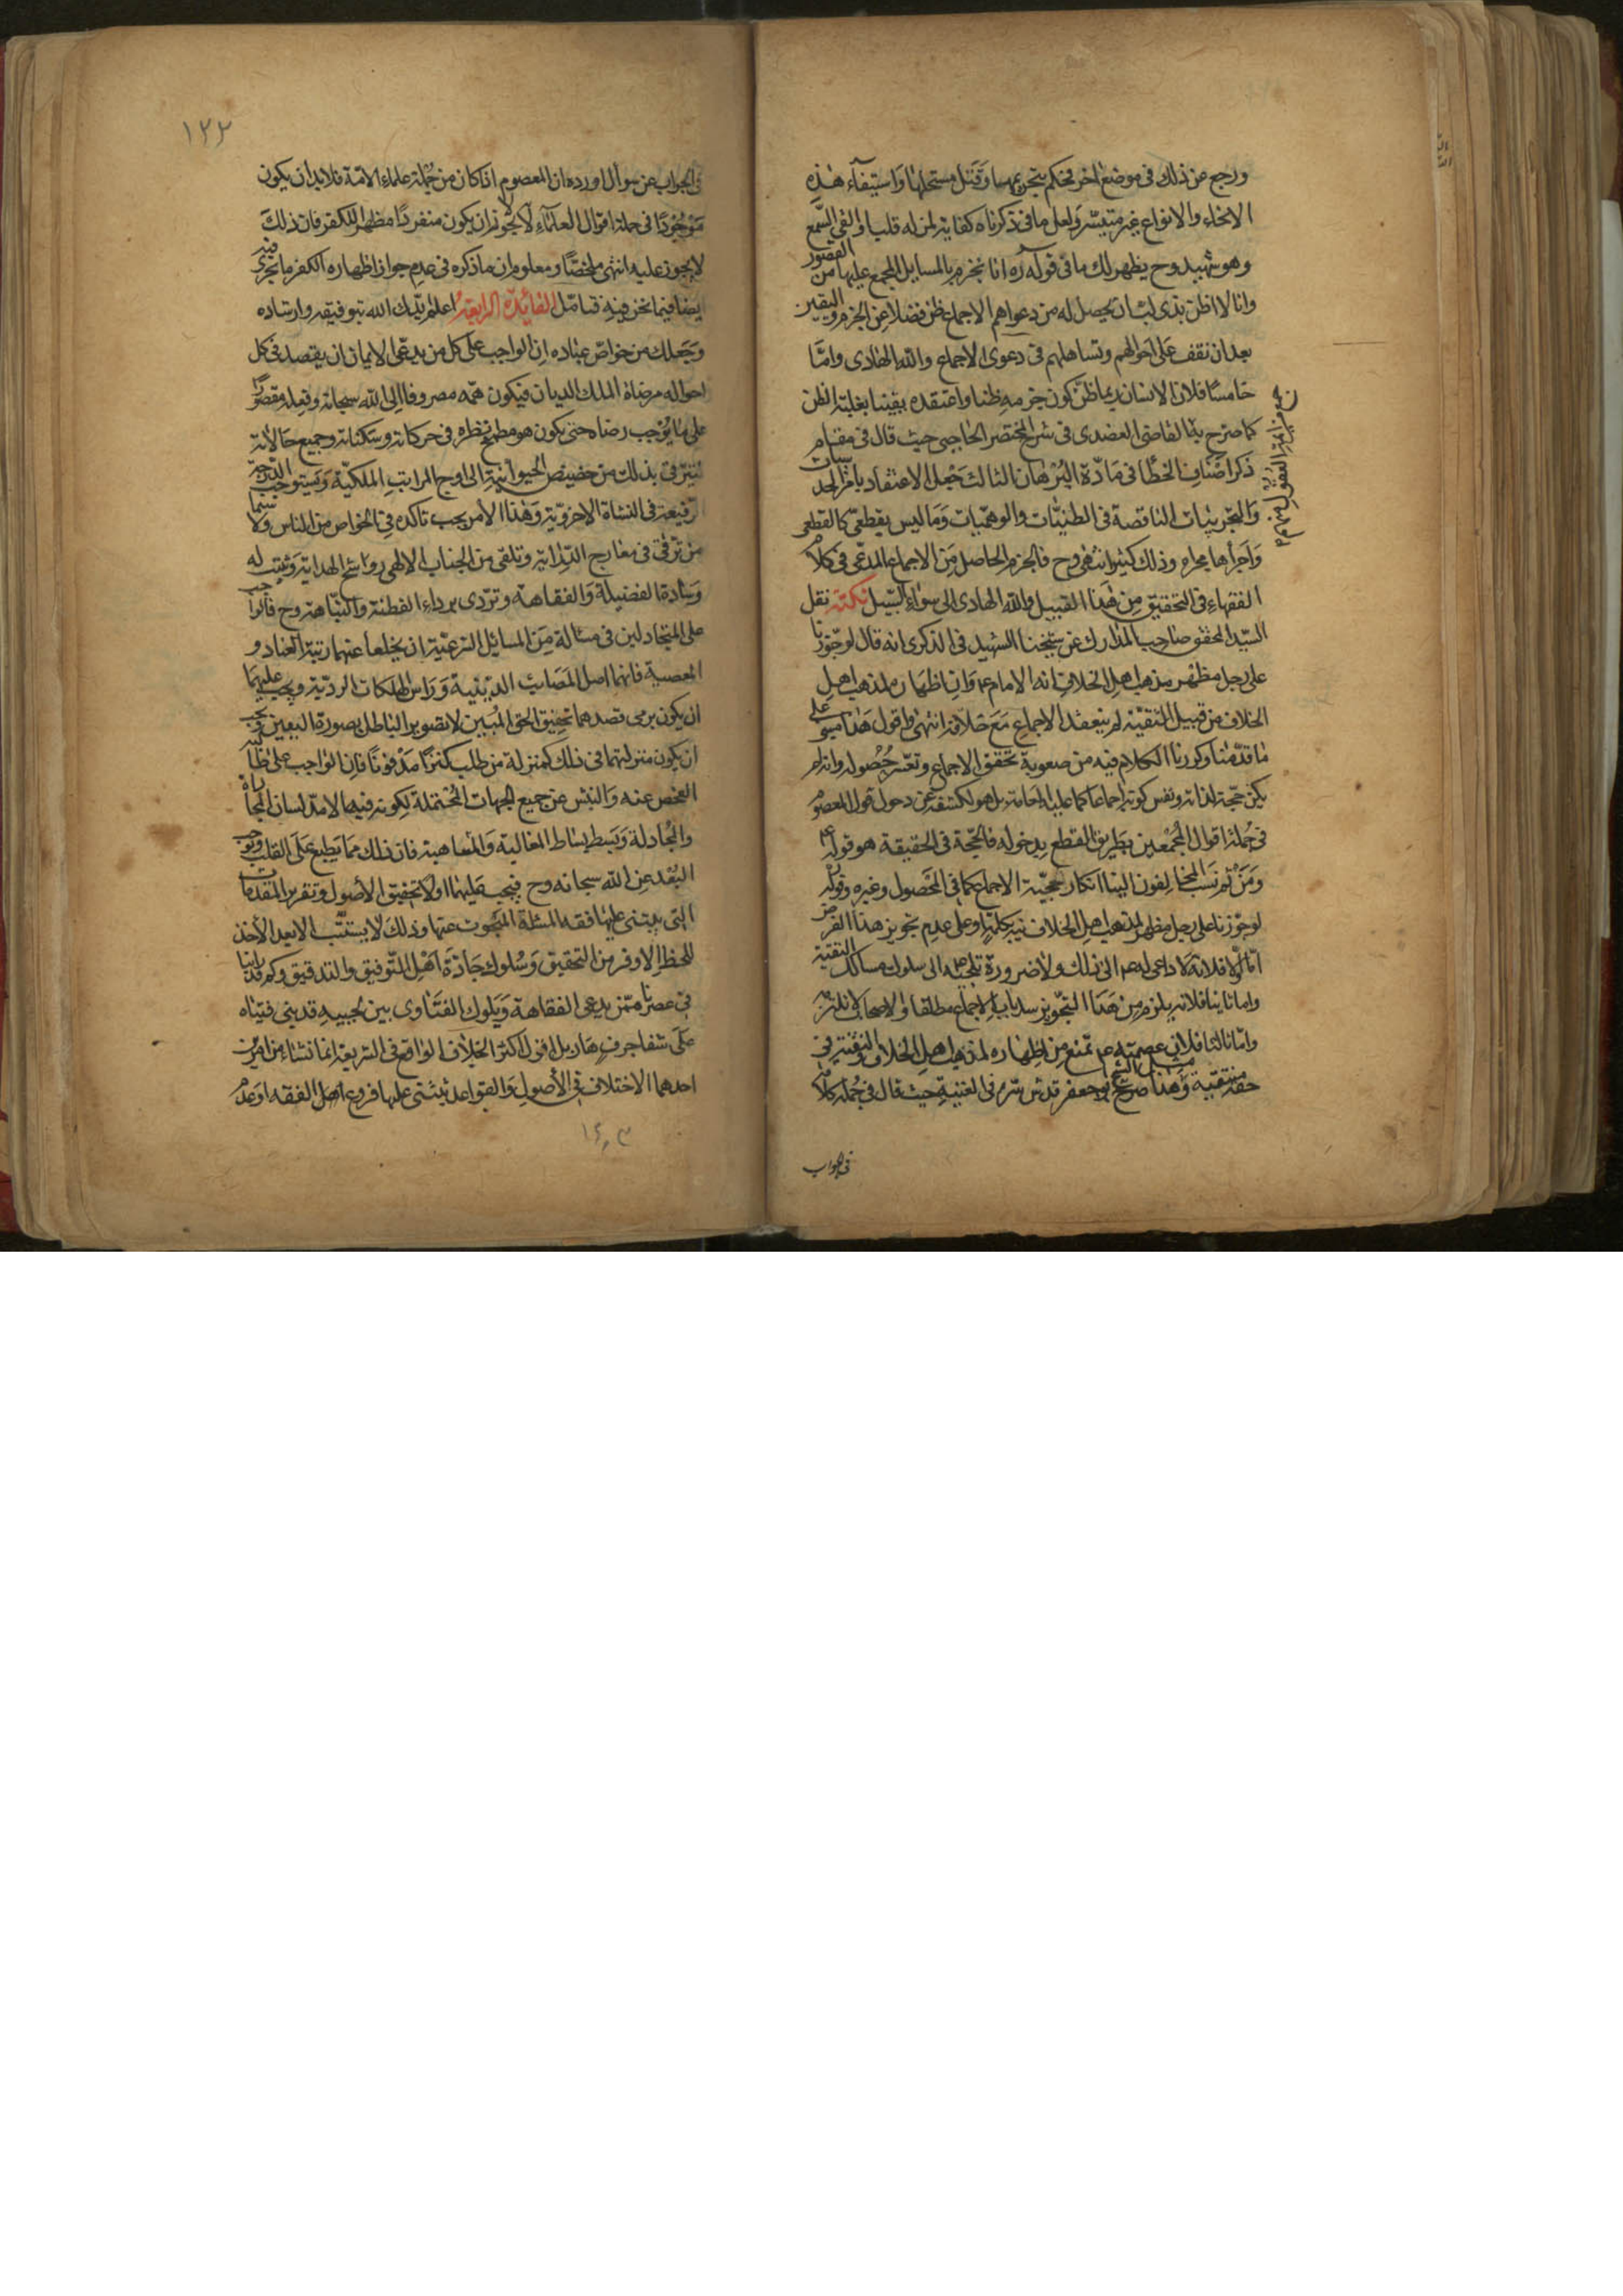 ورجع عن ذلك فى موضع اخر فحكم بتحريمها وقتل مستحلها واستيفاء هذه
الانحاء والانواع غير متيسر ولعل ما فى ذكرناه كفاية لمن له قلب او القى السمع
وهو شهيد وح يظهر لك ما فى قوله ره انا نجزم بالمسايل المجمع عليها من القصور
وانا لا اظن بذى لب ان يحصل له من دعواهم الاجماع ظن فضلا عن الجزم واليقين
بعد ان نقف على احوالهم وتساهلهم فى دعوى الاجماع والله الهادى واما
خامسا فلان الانسان ربما ظن كون جزمه ظنا واعتقده يقينا بغلبة الظن
كما صرح به القاضى العضدى فى شرح المختصر الحاجبى حيث قال فى مقام
ذكر اصناف الخطا فى مادة البرهان الثالث جعل الاعتقاديات
والتجربيات الناقصة فى الظنيات والوهميات وما ليس بقطعى كالقطعى
واجراها مجراه وذلك كثير انتهى وح فالجزم الحاصل من الاجماع المدعى فى كلام
الفقهاء فى التحقيق من هذا القبيل والله الهادى الى سواء السبيل نكتة نقل
السيد المحقق صاحب المدارك عن شيخنا الشهيد فى الذكرى انه قال لو جوزنا
على رجل مظهر مذهب اهل الخلاف انه الامام ع وان اظهاره لمذهب اهل
الخلاف من قبيل التقية لم ينعقد الاجماع مع خلافه انتهى واقول هذا مبنى على
ما قدمنا وكررنا الكلام فيه من صعوبة تحقق الاجماع وتعسر حصوله وانه لم
يكن حجة لذاته ونفس كونه اجماعا كما عليه العامة بل هو لكشفه عن دخول قول المعصوم
فى جملة اقوال المجمعين بطريق القطع بدخوله فالحجة فى الحقيقة هو قوله ع
ومن ثم نسب المخالفون الينا انكار حجية الاجماع كما فى المحصول وغيره وقوله
لو جوزنا على رجل مظهر لمذهب اهل الخلاف تنبيه كلمة لو على عدم تجويز هذا الفرض
اما اولا فلانه لا داعى له ع الى ذلك ولا ضرورة تلجئه الى سلوك مسالك التقية
واما ثانيا فلانه يلزم من هذا التجويز سد باب الاجماع مطلقا والاصحاب لا تلتزمه
واما ثالثا فلان عصمته ع تمنع من اظهاره لمذهب اهل الخلاف والتقية فى
حقه منتفية وهذا صريح الشيخ ابو جعفر قدس سره فى الغنية حيث قال فى جملة كلام
فى الجواب
١٢٢
فى الجواب عن سوال اورده ان المعصوم اذا كان من جملة علماء الامة فلا بد ان يكون
موجودا فى جملة اقوال العلماء لا يجوز ان يكون منفردا مظهرا للكفر فان ذلك
لا يجوز عليه انتهى ملخصا ومعلوم ان ما ذكره فى عدم جواز اظهاره الكفر ما يجرى
ايضا فيما نحن فيه فتامل الفائدة الرابعة اعلم ايدك الله بتوفيقه وارشاده
وجعلك من خواص عباده ان الواجب على كل من يدعى الايمان ان يقصد فى كل
احواله مرضاة الملك الديان فيكون همه مصروفا الى الله سبحانه وفعله مقصورا
على ما يوجب رضاه حتى يكون هو مطمح نظره فى حركاته وسكناته وجميع حالاته
ليترقى بذلك من حضيض الحيوانية الى اوج المراتب الملكية ويستوجب الدرجة
الرفيعة فى النشاة الاخروية وهذا الامر يجب تاكده فى الخواص من الناس ولا سيما
من ترقى فى معارج الدراية وتلقى من الجناب الالهى رواشح الهداية وثنيت له
وسادة الفضيلة والفقاهة وتردى برداء الفطنة والنباهة وح فالواجب
على المتجادلين فى مسالة من المسائل الشرعية ان يخلعا عنهما ربقة العناد و
العصبية فانها اصل المصائب الدينية وراس الملكات الردية ويجب عليهما
ان يكون مرمى قصدهما تحقيق الحق المبين لا تصوير الباطل بصورة اليقين يجب
ان يكون منزلتهما فى ذلك كمنزلة من طلب كنزا مدفونا فان الواجب على طالبه
الفحص عنه والنبش عن جميع الجهات المحتملة لكونه فيها لا مد لسان المماراة
والمجادلة وبسط بساط المغالبة فان ذلك مما يطبع على القلب ويوجب
البعد عن الله سبحانه وح فيجب عليهما اولا تحقيق الاصول وتقرير المقدمات
التى يبتنى عليها فقه المسئلة المبحوث عنها وذلك لا يستتب الا بعد الاخذ
بالحظ الاوفر من التحقيق وسلوك جادة اهل التوفيق والتدقيق وكم قد راينا
فى عصرنا ممن يدعى الفقاهة ويلوك الفتاوى بين لحييه قد بنى فتياه
على شفا جرف هار بل اقول اكثر الخلاف الواقع فى الشريعة انما نشاء من امرين
احدهما الاختلاف فى الاصول والقواعد يبتنى عليها فروع اهل الفقه او عدم